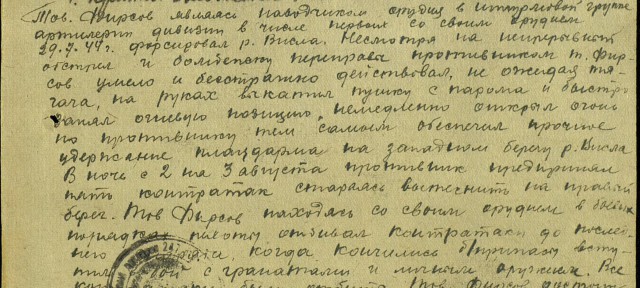 Тов. Фирсов являясь наводчиком орудия в штурмовой группе
артилерии дивизии в числе первых со своим орудием
29.7.44г. форсировал р. Висла. Несмотря на непрерывный
обстрел и бомбежку переправы противником т. Фир-
сов умело и бесстрашно действовал, не ожидая тя-
гача, на руках выкатил пушку с парома и быстро
занял огневую позицию, немедленно открыл огонь
по противнику тем самым обеспечил прочное
удержание плацдарма на западном берегу р. Висла
В ночь с 2 на 3 августа противник предпринял
пять контратак стараясь вытеснить на правый
берег. Тов Фирсов находясь со своим орудием в боевых
порядках пехоты отбивал контратаки до послед-
него когда кончились б/припасы всту-
пил в бой с гранатами и личным оружием. Все
были отбиты. Тов. Фирсов